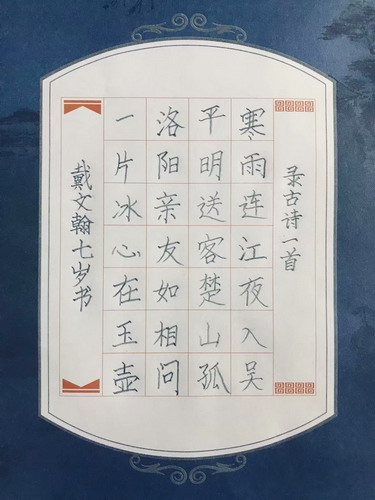 录古诗一首
寒雨连江夜入吴
平明送客楚山孤
洛阳亲友如相问
一片冰心在玉壶
戴文翰七岁书